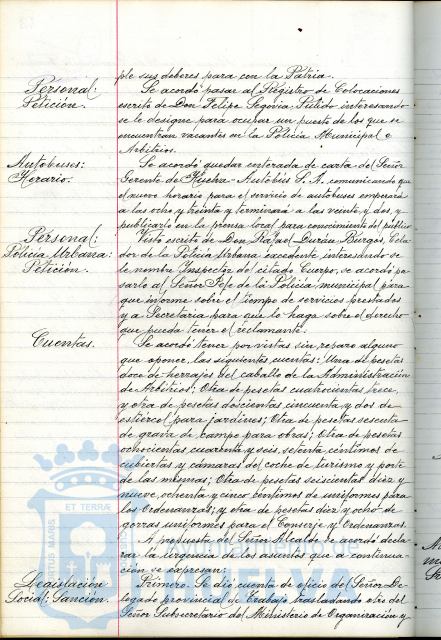 ple sus deberes para con la Patria.
Personal:
Petición.
Se acordó pasar al Registro de Colocaciones
escrito de Don Felipe Segovia Pulido interesando
se le designe para ocupar un puesto de los que se
encuentran vacantes en la Policía Municipal e
Arbitrios.
Autobuses:
Horario.
Se acordó quedar enterada de carta del Señor
Gerente de Huelva-Autobús S. A. comunicando que
el nuevo horario para el servicio de autobuses empezará
a las ocho y treinta y terminará a las veinte y dos, y
publicarlo en la prensa local para conocimiento del público.
Personal:
Policía Urbana:
Petición.
Visto escrito de Don Rafael Durán Burgos, Cela-
dor de la Policía Urbana excedente interesando se
le nombre Inspector del citado Cuerpo, se acordó pa-
sarlo al Señor Jefe de la Policía municipal para
que informe sobre el tiempo de servicios prestados
y a Secretaría para que lo haga sobre el derecho
que pueda tener el reclamante.
Cuentas.
Se acordó tener por vistas sin reparo alguno
que oponer, las siguientes cuentas: Una de pesetas
doce de herrajes del caballo de la Administración
de Arbitrios; Otra de pesetas cuatrocientas trece,
y otra de pesetas doscientas cincuenta y dos de
estiércol para jardines; Otra de pesetas sesenta
de grava de campo para obras; Otra de pesetas
ochocientas cuarenta y seis, setenta céntimos de
cubiertas y cámaras del coche de turismo y porte
de las mismas; Otra de pesetas seiscientas diez y
nueve, ochenta y cinco céntimos de uniformes para
los Ordenanzas; y otra de pesetas diez y ocho de
gorras uniformes para el Conserje y Ordenanzas.
A propuesta del Señor Alcalde se acordó decla-
rar la urgencia de los asuntos que a continua-
ción se expresan:
Legislación
Social: Sanción.
Primero. Se dió cuenta de oficio del Señor De-
legado provincial de Trabajo trasladando otro del
Señor Subsecretario del Ministerio de Organización y
ET TERRÆ